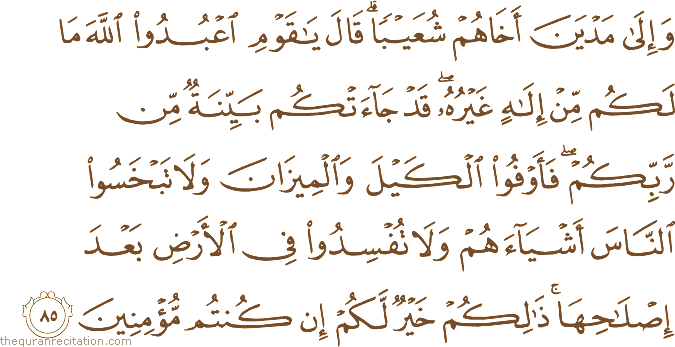 وَإِلَىٰ مَدْيَنَ أَخَاهُمْ شُعَيْبًا ۗ قَالَ يَـٰقَوْمِ ٱعْبُدُوا۟ ٱللَّهَ مَا
لَكُم مِّنْ إِلَـٰهٍ غَيْرُهُۥ ۖ قَدْ جَآءَتْكُم بَيِّنَةٌ مِّن
رَّبِّكُمْ ۖ فَأَوْفُوا۟ ٱلْكَيْلَ وَٱلْمِيزَانَ وَلَا تَبْخَسُوا۟
ٱلنَّاسَ أَشْيَآءَهُمْ وَلَا تُفْسِدُوا۟ فِى ٱلْأَرْضِ بَعْدَ
إِصْلَـٰحِهَا ۚ ذَٰلِكُمْ خَيْرٌ لَّكُمْ إِن كُنتُم مُّؤْمِنِينَ ٨٥
thequranrecitation.com